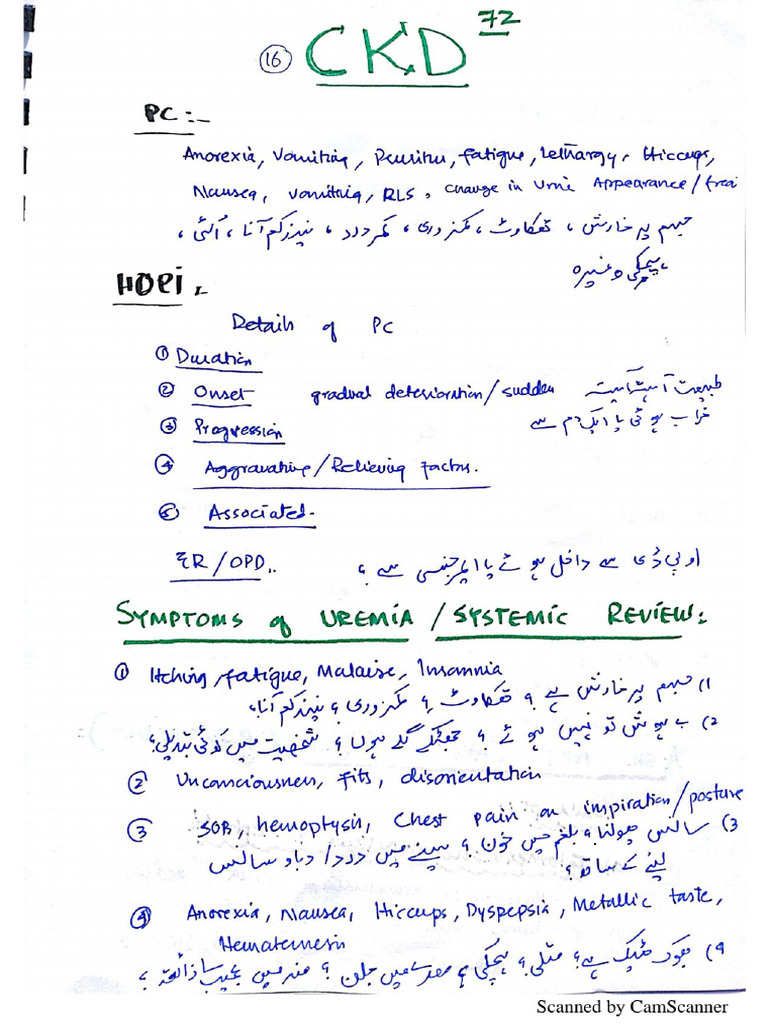 72
16 CKD
PC:-
Anorexia, Vomiting, Pruritus, fatigue, Lethargy, Hiccups,
Nausea, vomiting, RLS, change in Urine Appearance/
جسم پر خارش ، تھکاوٹ ، کمزوری ، کمر درد ، نیند کم آنا ، اُلٹی ،
ہچکی وغیرہ
HOPI:
Details of PC
① Duration
② Onset gradual deterioration/sudden طبیعت آہستہ آہستہ
③ Progression خراب ہوئی یا ایک دم سے
④ Aggravating/Relieving factors.
⑤ Associated.
ER/OPD.. او پی ڈی سے داخل ہوئے یا ایمرجنسی سے ؟
SYMPTOMS of UREMIA / SYSTEMIC REVIEW:
① Itching, fatigue, Malaise, Insomnia
1) جسم پر خارش ہے ؟ تھکاوٹ ؟ کمزوری ؟ نیند کم آنا؟
2) بے ہوش تو نہیں ہوئے ؟ جھٹکے لگے ہوں ؟ شخصیت میں کوئی تبدیلی؟
② Unconsciousness, fits, disorientation
③ SOB, hemoptysis, Chest pain on inspiration/posture
3) سانس پھولنا؟ بلغم میں خون ؟ سینے میں درد/دباؤ سانس
لینے کے ساتھ ؟
④ Anorexia, Nausea, Hiccups, Dyspepsia, Metallic taste,
Hematemesis
4) بھوک ٹھیک ہے؟ متلی؟ ہچکی؟ معدے میں جلن ؟ منہ میں عجیب سا ذائقہ ؟
Scanned by CamScanner